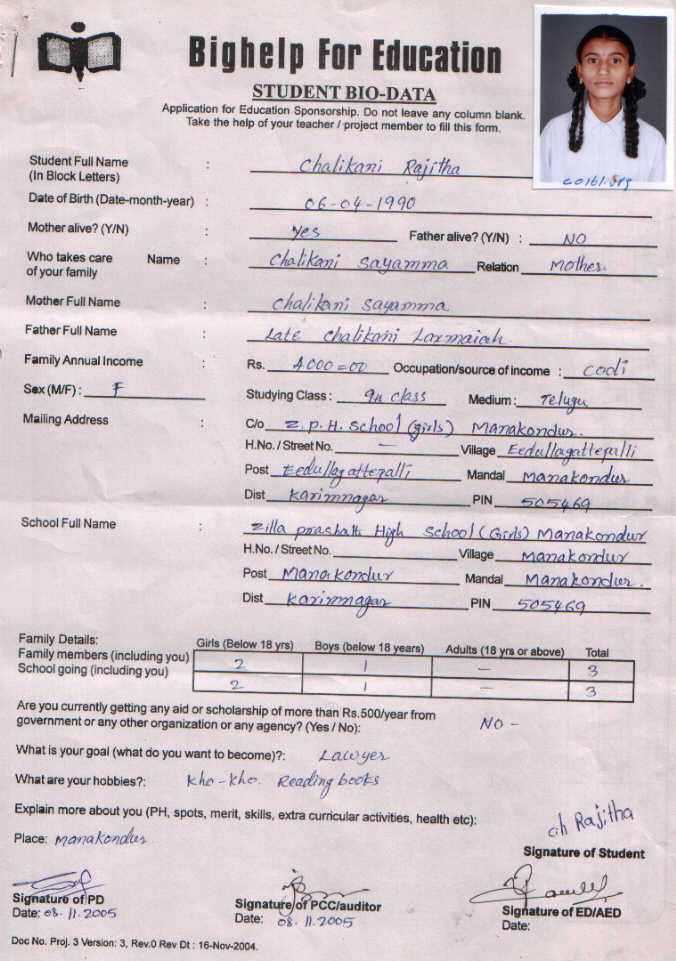 Bighelp For Education
STUDENT BIO-DATA
Application for Education Sponsorship. Do not leave any column blank.
Take the help of your teacher / project member to fill this form.
Student Full Name : Chalikani Rajitha
(In Block Letters)
Date of Birth (Date-month-year) : 06-04-1990
Mother alive? (Y/N) : Yes Father alive? (Y/N) : NO
Who takes care Name : Chalikani Sayamma Relation Mother
of your family
Mother Full Name : Chalikani Sayamma
Father Full Name : Late Chalikani Laxmaiah
Family Annual Income : Rs. 4000=00 Occupation/source of income : Cooli
Sex (M/F) : F Studying Class : 9th class Medium : Telugu
Mailing Address : C/o Z.P.H. School (girls) Manakondur.
H.No. / Street No. — Village Eedullagattepalli
Post Eedullagattepalli Mandal Manakondur
Dist Karimnagar PIN 505469
School Full Name : Zilla High School (Girls) Manakondur
H.No. / Street No. Village Manakondur
Post Manakondur Mandal Manakondur.
Dist Karimnagar PIN 505469
Family Details: Girls (Below 18 yrs) Boys (below 18 years) Adults (18 yrs or above) Total
Family members (including you) 2 1 — 3
School going (including you) 2 1 — 3
Are you currently getting any aid or scholarship of more than Rs.500/year from
government or any other organization or any agency? (Yes / No): NO -
What is your goal (what do you want to become)?: Lawyer
What are your hobbies?: Kho-kho. Reading books
Explain more about you (PH, spots, merit, skills, extra curricular activities, health etc):
Place: Manakondur
ch Rajitha
Signature of Student
Signature of PD Signature of PCC/auditor Signature of ED/AED
Date: 08.11.2005 Date: 08.11.2005 Date:
Doc No. Proj. 3 Version: 3, Rev.0 Rev Dt : 16-Nov-2004.